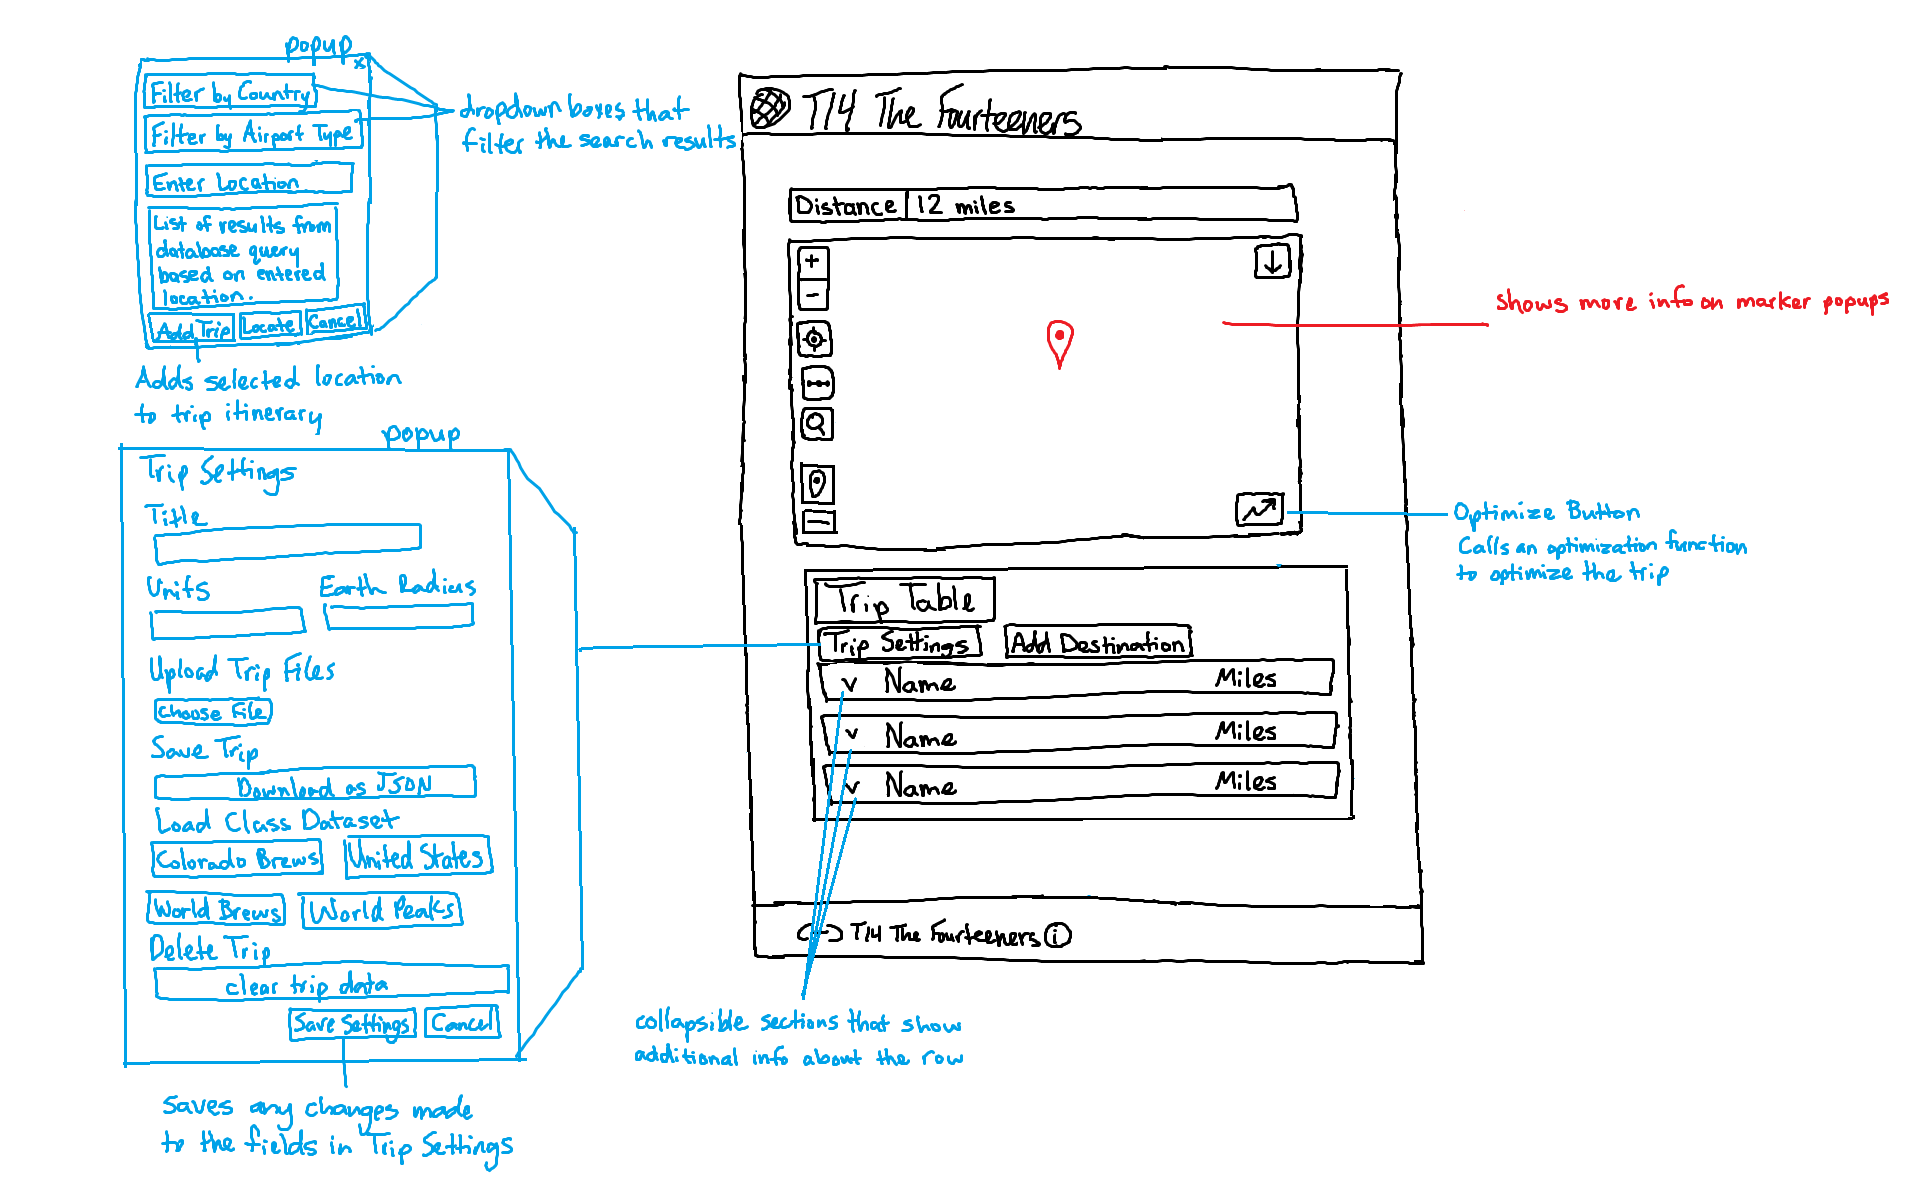 popup
x
Filter by Country
Filter by Airport Type
Enter Location
List of results from
database query
based on entered
location.
Add Trip
Locate
Cancel
dropdown boxes that
filter the search results
Adds selected location
to trip itinerary
popup
Trip Settings
Title
Units
Earth Radius
Upload Trip Files
Choose File
Save Trip
Download as JSON
Load Class Dataset
Colorado Brews
United States
World Brews
World Peaks
Delete Trip
clear trip data
Save Settings
Cancel
Saves any changes made
to the fields in Trip Settings
T14 The Fourteeners
Distance
12 miles
+
-
shows more info on marker popups
Optimize Button
Calls an optimization function
to optimize the trip
Trip Table
Trip Settings
Add Destination
v Name Miles
v Name Miles
v Name Miles
T14 The Fourteeners i
collapsible sections that show
additional info about the row